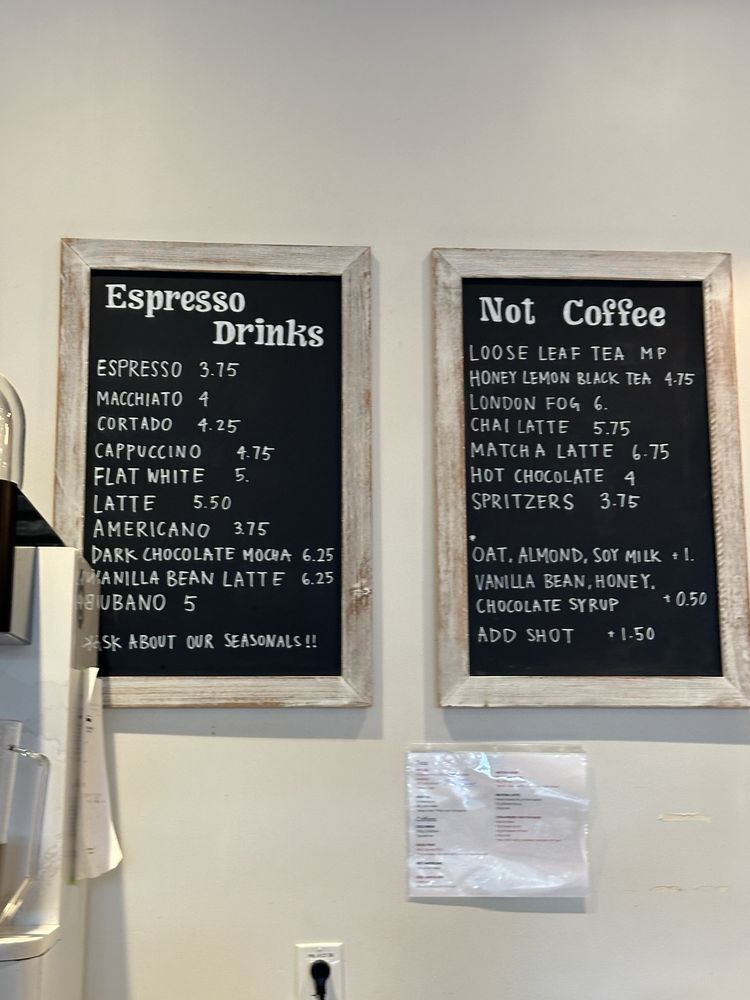 Espresso
Drinks
ESPRESSO 3.75
MACCHIATO 4
CORTADO 4.25
CAPPUCCINO 4.75
FLAT WHITE 5.
LATTE 5.50
AMERICANO 3.75
DARK CHOCOLATE MOCHA 6.25
VANILLA BEAN LATTE 6.25
5
ASK ABOUT OUR SEASONALS!!
Not Coffee
LOOSE LEAF TEA MP
HONEY LEMON BLACK TEA 4.75
LONDON FOG 6.
CHAI LATTE 5.75
MATCHA LATTE 6.75
HOT CHOCOLATE 4
SPRITZERS 3.75
OAT, ALMOND, SOY MILK +1.
VANILLA BEAN, HONEY,
CHOCOLATE SYRUP +0.50
ADD SHOT +1.50